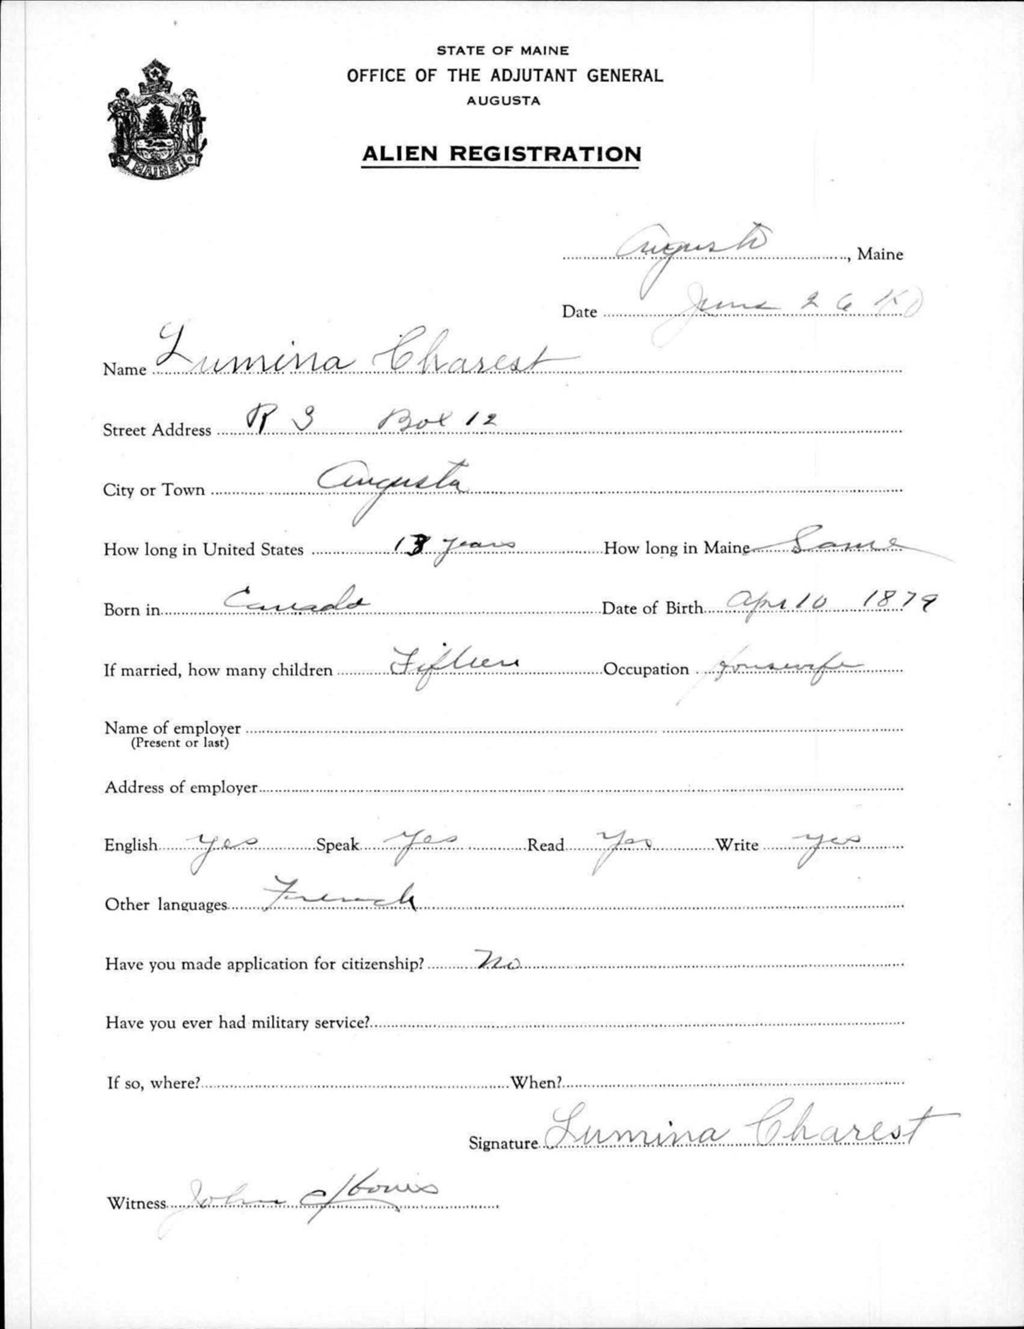 STATE OF MAINE
OFFICE OF THE ADJUTANT GENERAL
AUGUSTA
ALIEN REGISTRATION
MAINE
Augusta, Maine
Date June 26 40
Name Lumina Charest
Street Address R 3 Box 12
City or Town Augusta
How long in United States years How long in Maine Same
Born in Canada Date of Birth Apr 10 1879
If married, how many children Fifteen Occupation housewife
Name of employer
(Present or last)
Address of employer
English yes Speak yes Read yes Write yes
Other languages French
Have you made application for citizenship? No
Have you ever had military service?
If so, where? When?
Signature Lumina Charest
Witness John